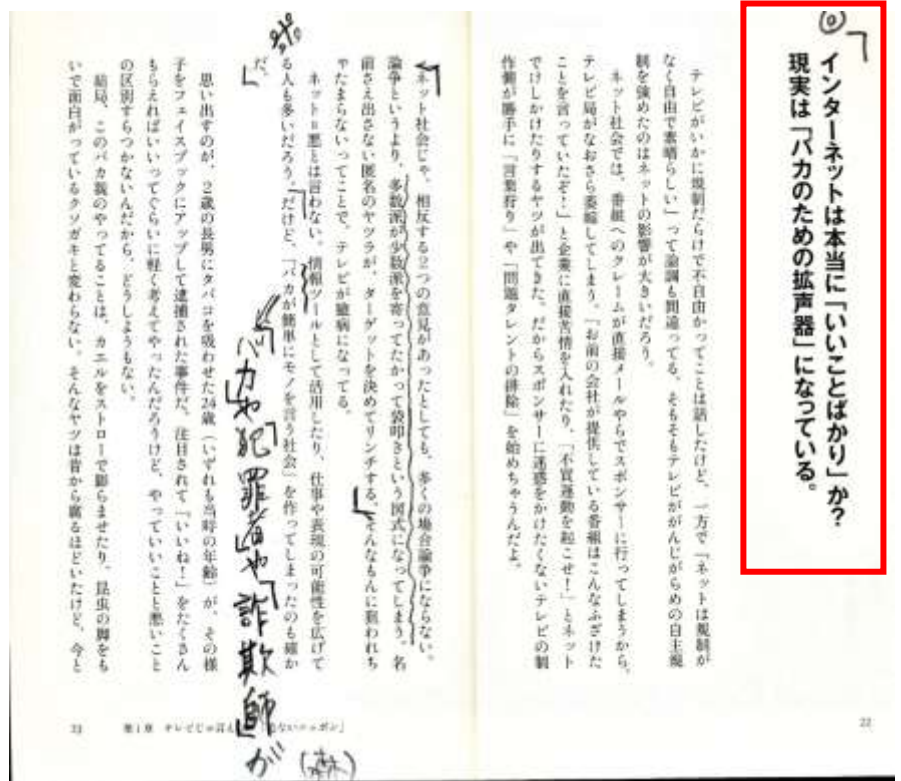 インターネットは本当に「いいことばかり」か?
現実は「バカのための拡声器」になっている。
テレビがいかに規制だらけで不自由かってことは話したけど、一方で「ネットは規制が
なく自由で素晴らしい」って論調も間違ってる。そもそもテレビががんじがらめの自主規
制を強めたのはネットの影響が大きいだろう。
ネット社会では、番組へのクレームが直接メールやらでスポンサーに行ってしまうから、
テレビ局がなおさら萎縮してしまう。「お前の会社が提供している番組はこんなふざけた
ことを言っていたぞ!」と企業に直接苦情を入れたり、「不買運動を起こせ!」とネット
でけしかけたりするヤツが出てきた。だからスポンサーに迷惑をかけたくないテレビの制
作側が勝手に「言葉狩り」や「問題タレントの排除」を始めちゃうんだよ。
22
ネット社会じゃ、相反する2つの意見があったとしても、多くの場合論争にならない。
論争というより、多数派が少数派を寄ってたかって袋叩きという図式になってしまう。名
前さえ出さない匿名のヤツラが、ターゲットを決めてリンチする。そんなもんに狙われち
ゃたまらないってことで、テレビが臆病になってる。
ネット=悪とは言わない。情報ツールとして活用したり、仕事や表現の可能性を広げて
る人も多いだろう。だけど、「バカが簡単にモノを言う社会」を作ってしまったのも確か
だ。
「バカ」や「犯罪者」や「詐欺師」が
思い出すのが、2歳の長男にタバコを吸わせた24歳(いずれも当時の年齢)が、その様
子をフェイスブックにアップして逮捕された事件だ。注目されて「いいね!」をたくさん
もらえればいいってぐらいに軽く考えてやったんだろうけど、やっていいことと悪いこと
の区別すらつかないんだから、どうしようもない。
結局、このバカ親のやってることは、カエルをストローで膨らませたり、昆虫の脚をも
いで面白がっているクソガキと変わらない。そんなヤツは昔から腐るほどいたけど、今と
23
第1章 テレビじゃ言え
ないニッポン」